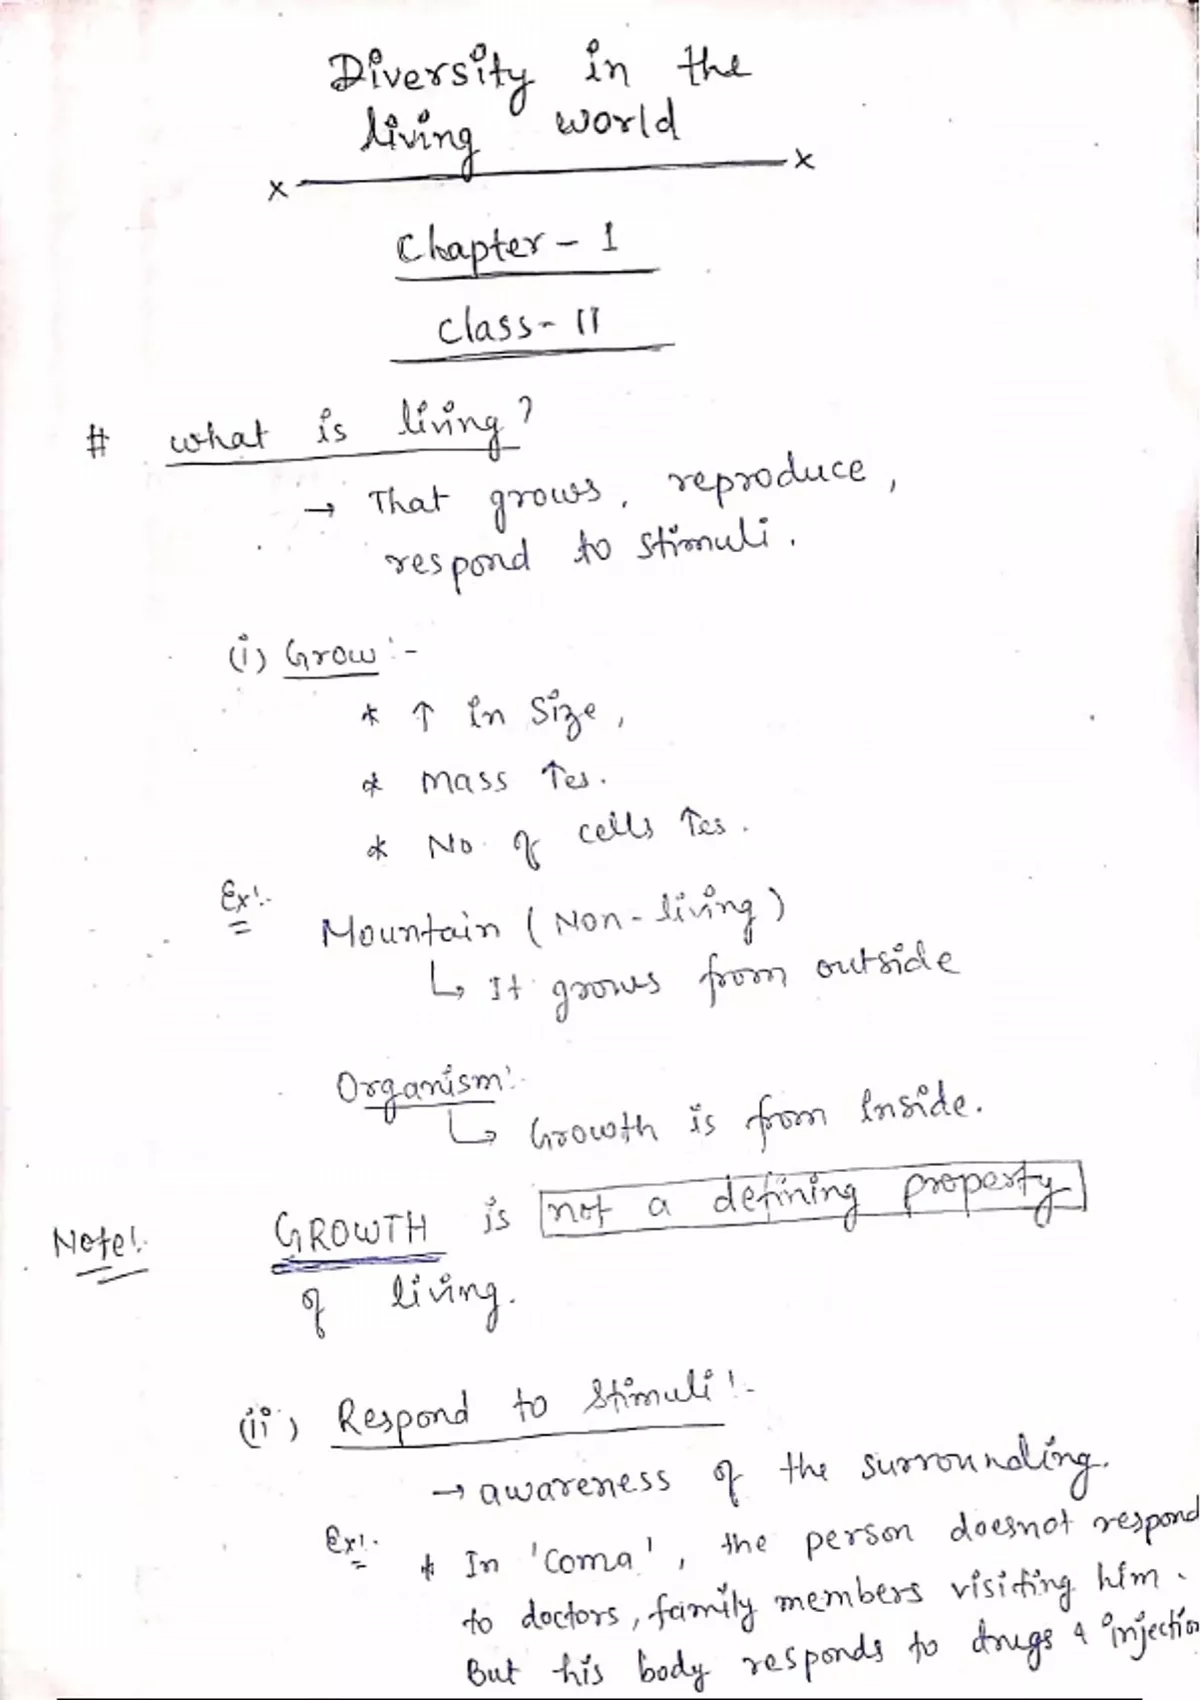 Diversity in the
living world
x x
Chapter - 1
Class - 11
# what is living?
→ That grows, reproduce,
respond to stimuli.
(i) Grow :-
* ↑ in Size,
* mass ↑es.
* No. of cells ↑es.
Ex:-
Mountain (Non-living)
↳ It grows from outside
Organism:-
↳ Growth is from Inside.
Note:- GROWTH is not a defining property
of living.
(ii) Respond to Stimuli:-
→ awareness of the surrounding.
Ex:- * In 'Coma', the person doesnot respond
to doctors, family members visiting him.
But his body responds to drugs & injection